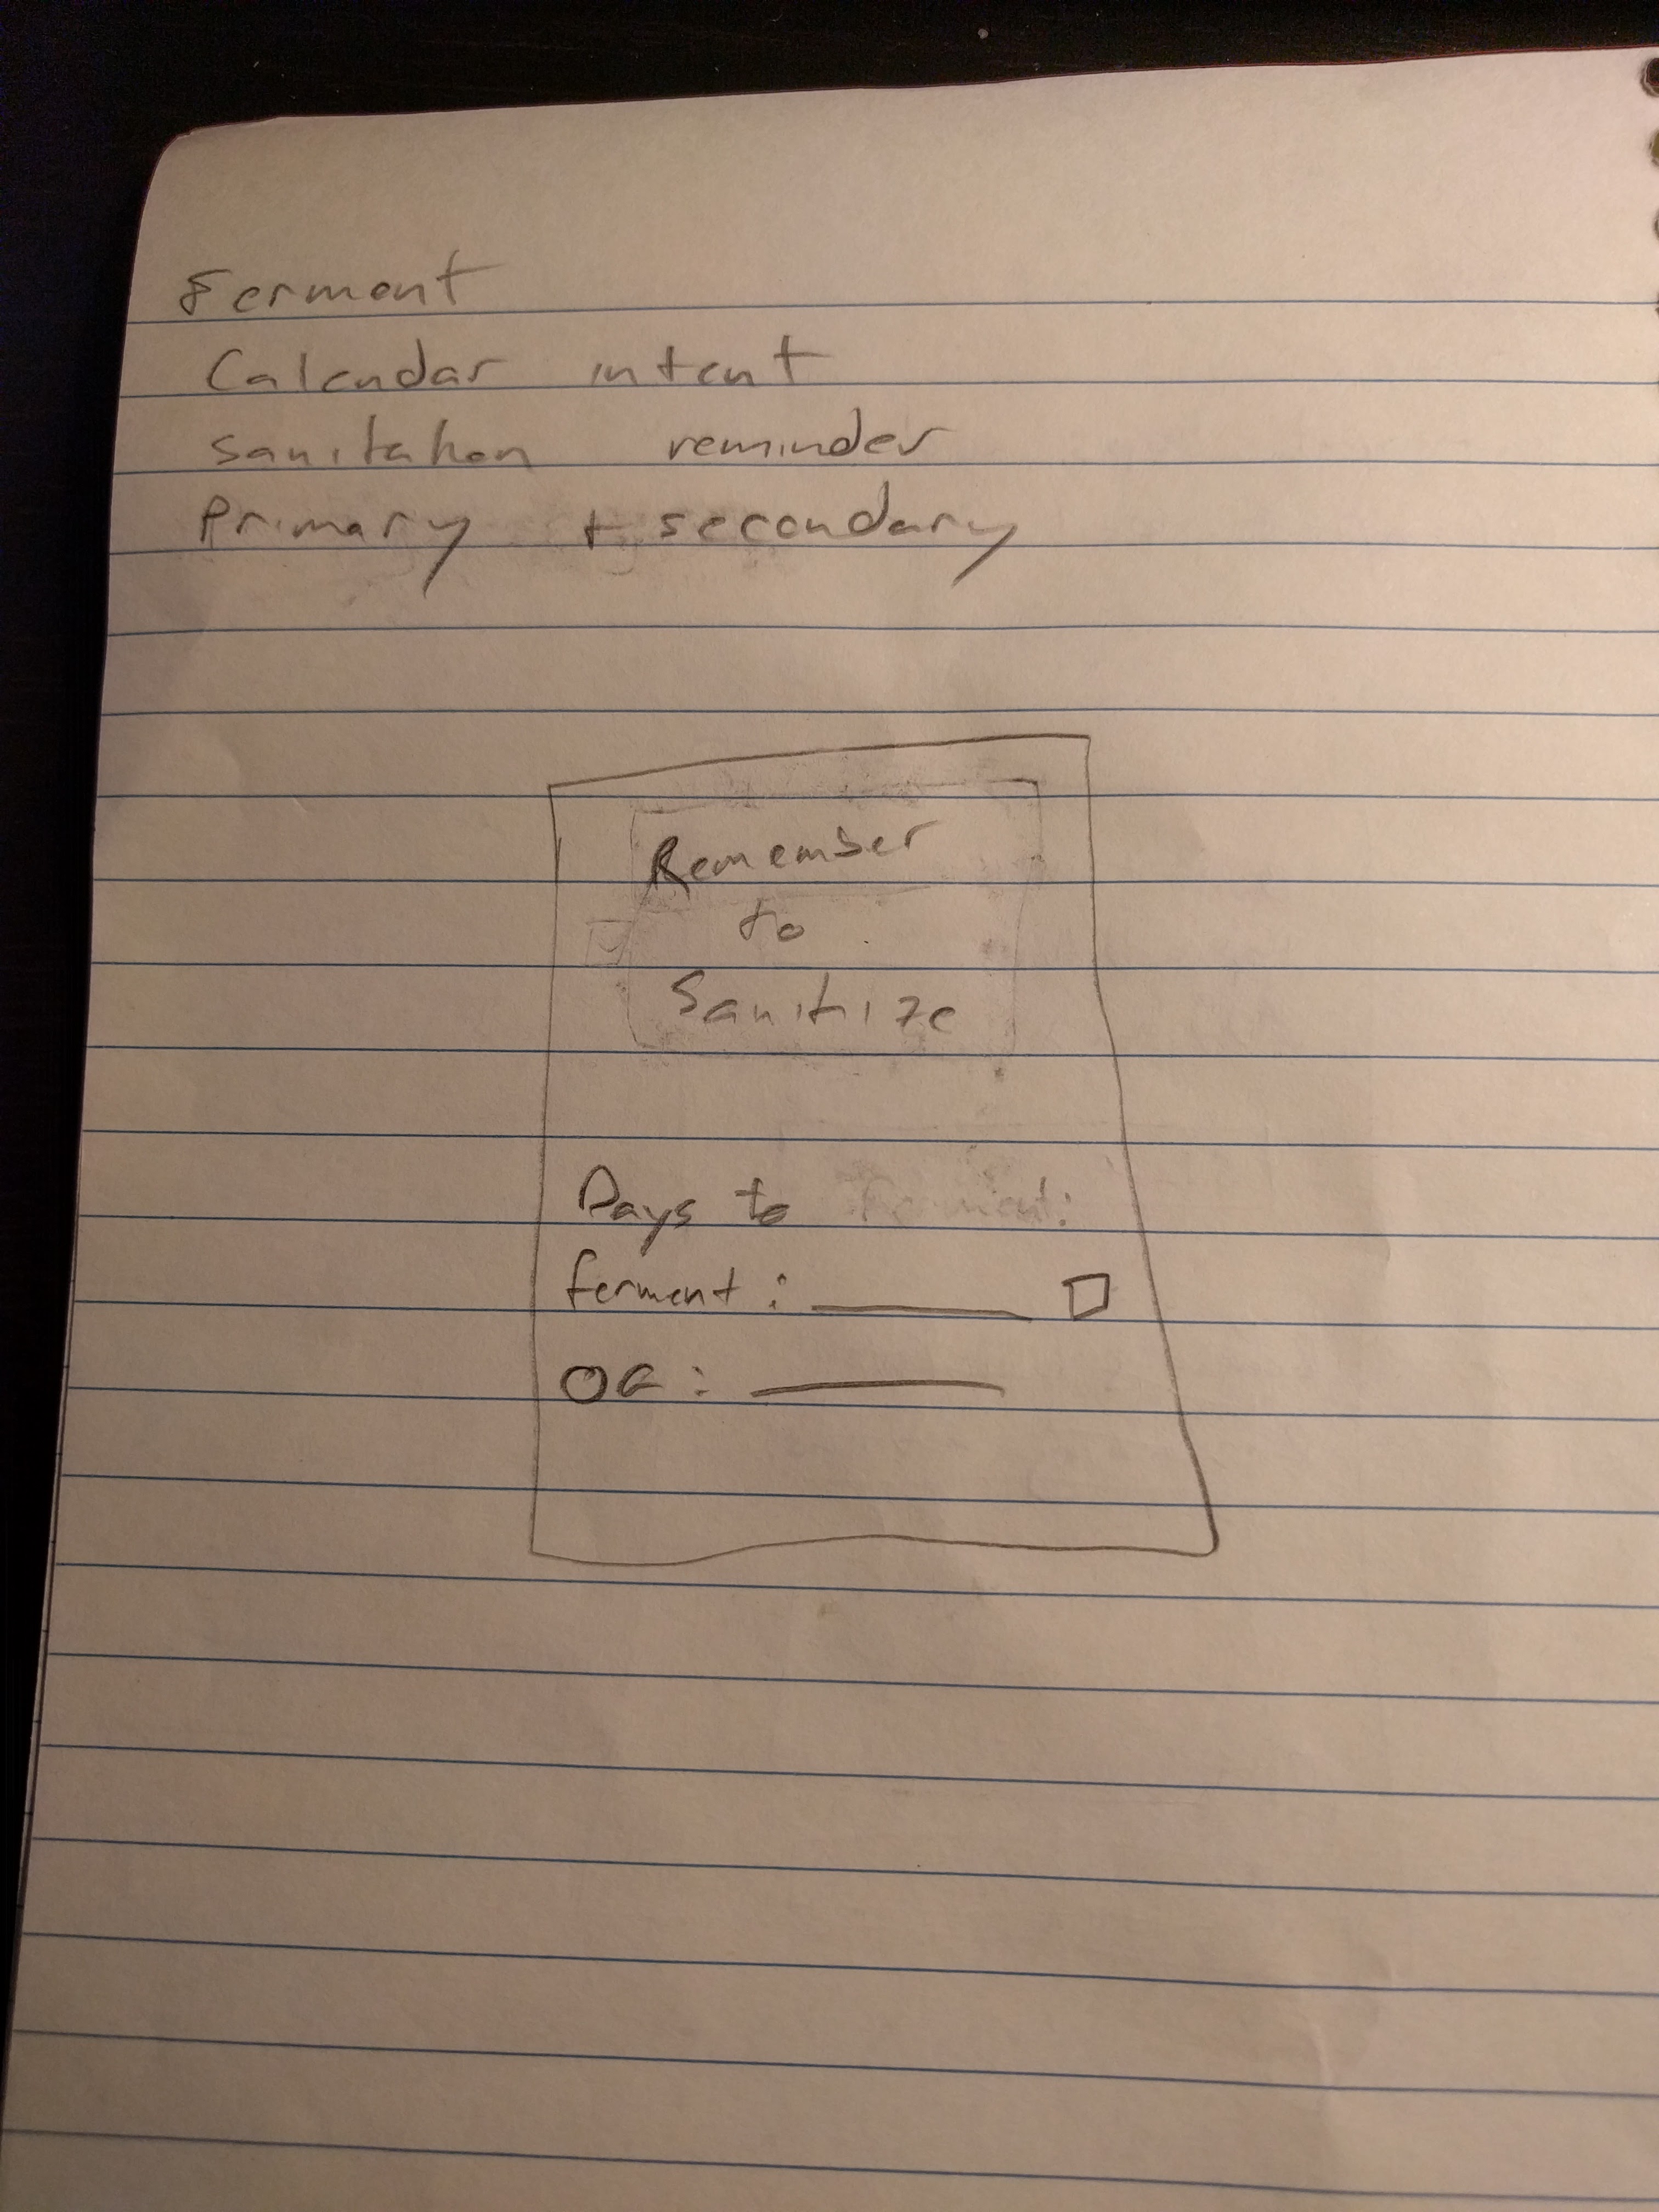 Ferment
Calendar intent
sanitation reminder
Primary + secondary
Remember
to
Sanitize
Days to Ferment:
ferment :
OG :